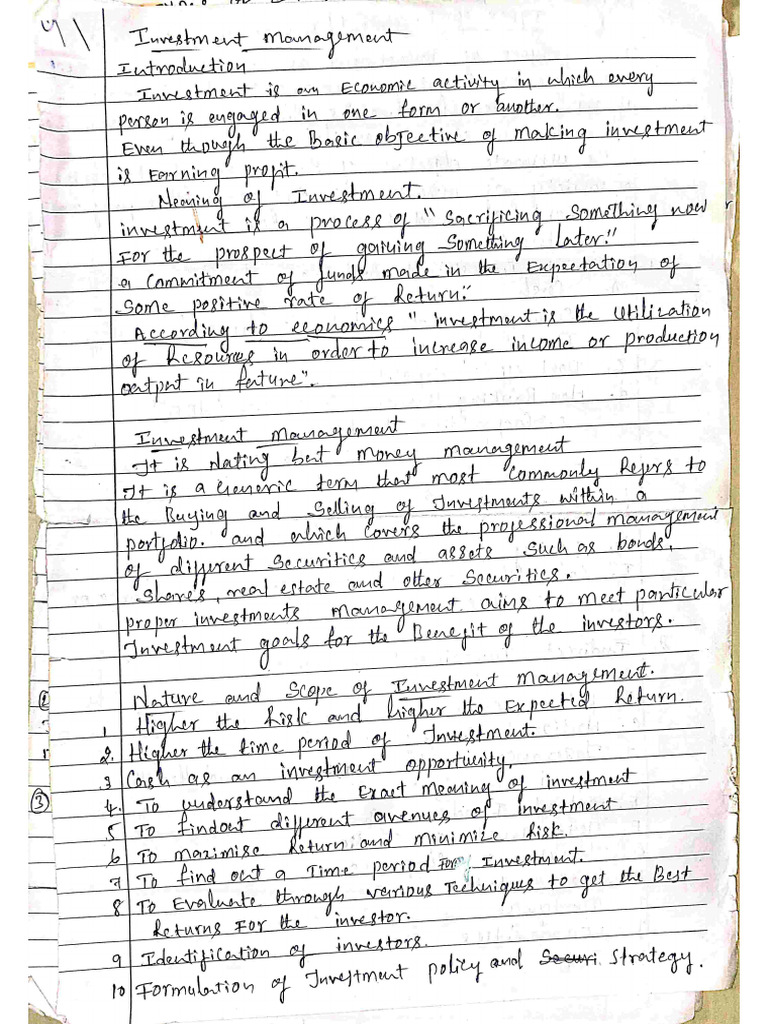 Investment management
Introduction
Investment is an Economic activity in which every
person is engaged in one form or another.
Even though the Basic objective of making investment
is Earning profit.
Meaning of Investment.
investment is a process of "Sacrificing Something now
For the prospect of gaining Something Later."
a Commitment of funds made in the Expectation of
Some positive rate of Return."
According to economics "investment is the Utilization
of Resources in order to increase income or production
output in future".
Investment Management
It is Nating but Money management
It is a Generic term that most Commonly Refers to
the Buying and Selling of Investments within a
portfolio. and which Covers the professional management
of different Securities and assets Such as bonds,
Shares, real estate and other Securities.
proper investments Management aims to meet particular
Investment goals for the Benefit of the investors.
Nature and Scope of Investment Management.
1 Higher the Risk and higher the Expected Return.
2. Higher the time period of Investment.
3 Cash as an investment opportunity.
③ 4. To understand the Exact Meaning of investment
5 To findout different avenues of investment
6 To maximise Return and minimize Risk
7 To find out a Time period For Investment.
8 To Evaluate through various Techniques to get the Best
Returns For the investor.
9 Identification of investors.
10 Formulation of Investment policy and Securi Strategy.